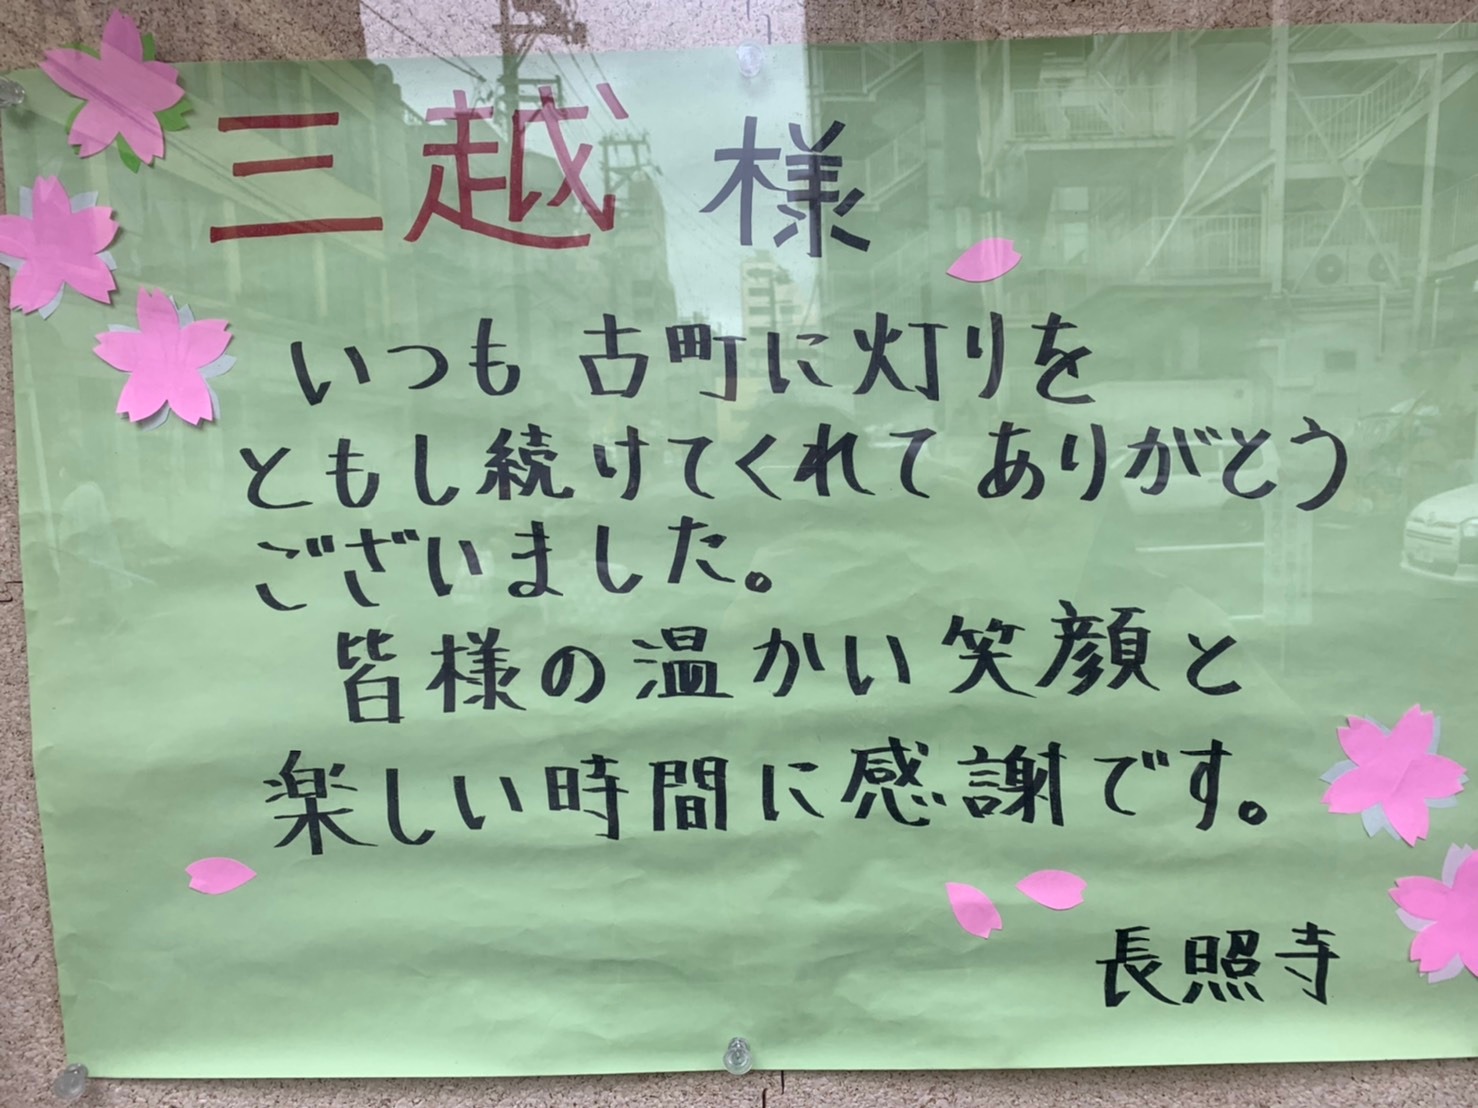 三越 様
いつも 古町に灯りを
ともし続けてくれてありがとう
ございました。
皆様の温かい笑顔と
楽しい時間に感謝です。
長照寺